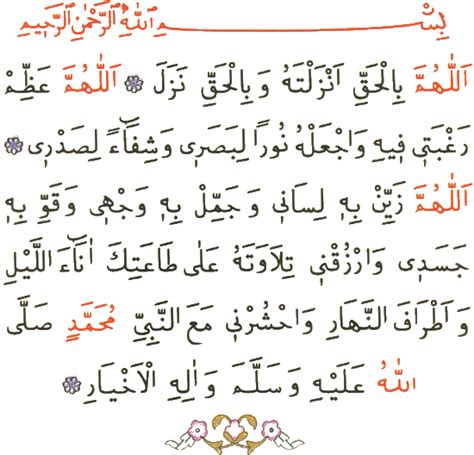 بِسْــــــمِ اللّٰهِ الرَّحْمٰنِ الرَّحٖيمِ
اَللّٰهُمَّ بِالْحَقِّ اَنْزَلْتَهُ وَ بِالْحَقِّ نَزَلَ ❁ اَللّٰهُمَّ عَظِّمْ
رَغْبَتٖى فٖيهِ وَاجْعَلْهُ نُورًا لِبَصَرٖى وَشِفَٓاءً لِصَدْرٖى ❁
اَللّٰهُمَّ زَيِّنْ بِهٖ لِسَانٖى وَ جَمِّلْ بِهٖ وَجْهٖى وَ قَوِّ بِهٖ
جَسَدٖى وَ ارْزُقْنٖى تِلَاوَتَهُ عَلٰى طَاعَتِكَ اٰنَٓاءَ الَّيْلِ
وَ اَطْرَافَ النَّهَارِ وَاحْشُرْنٖى مَعَ النَّبِىِّ مُحَمَّدٍ صَلَّى
اللّٰهُ عَلَيْهِ وَ سَلَّمَ وَ اٰلِهِ الْاَخْيَارِ ❁